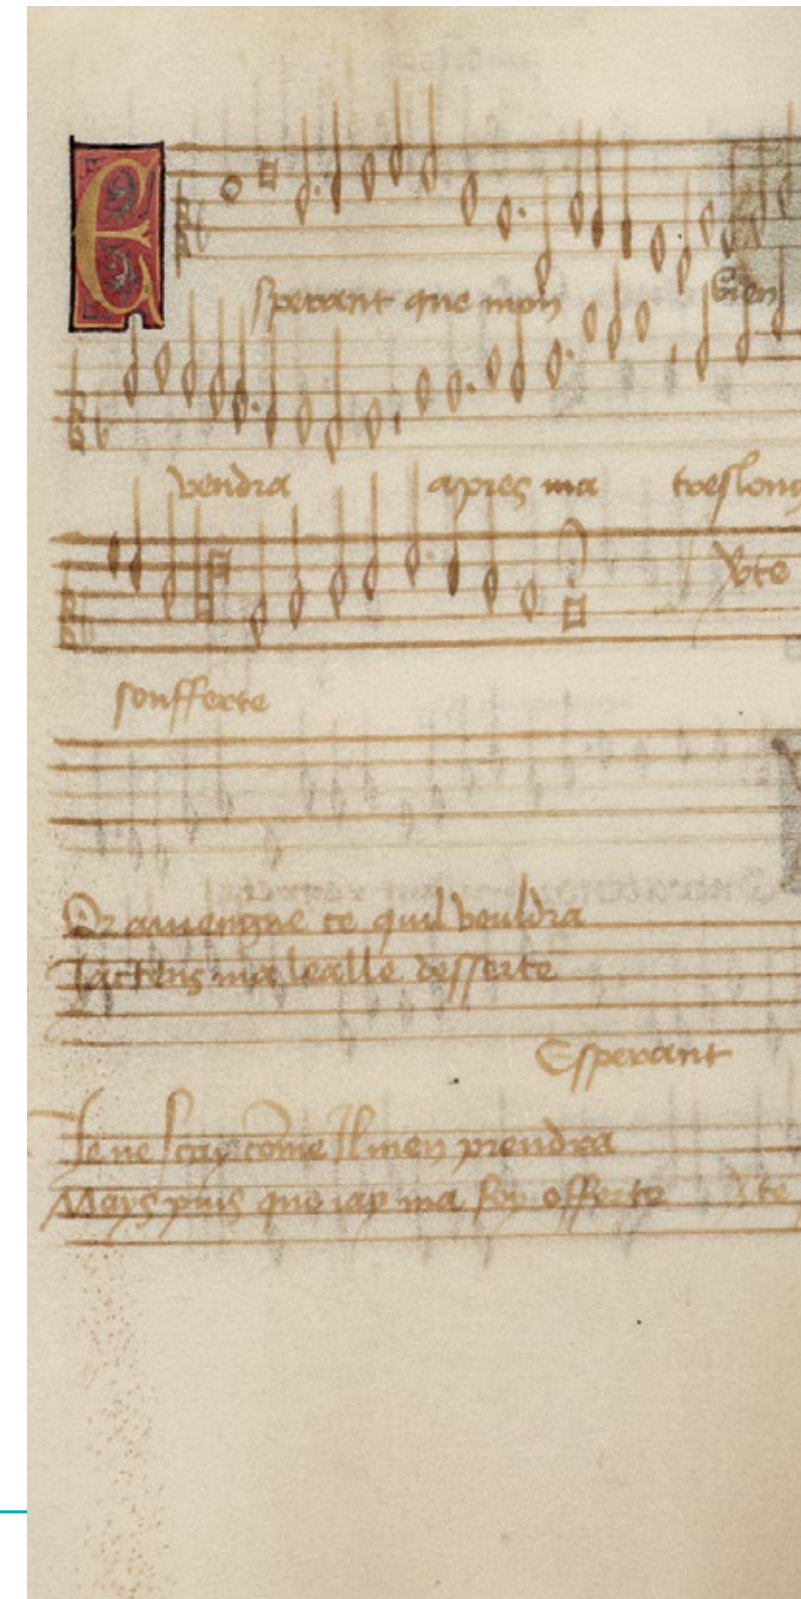 Esperant que mon bien
vendra apres ma treslong
vte
soufferte
Or aviengne ce quil vouldra
Jactens ma lealle desserte
Esperant
Je ne scay cõme Il men prendra
Mays puis que iay ma foy offerte vte